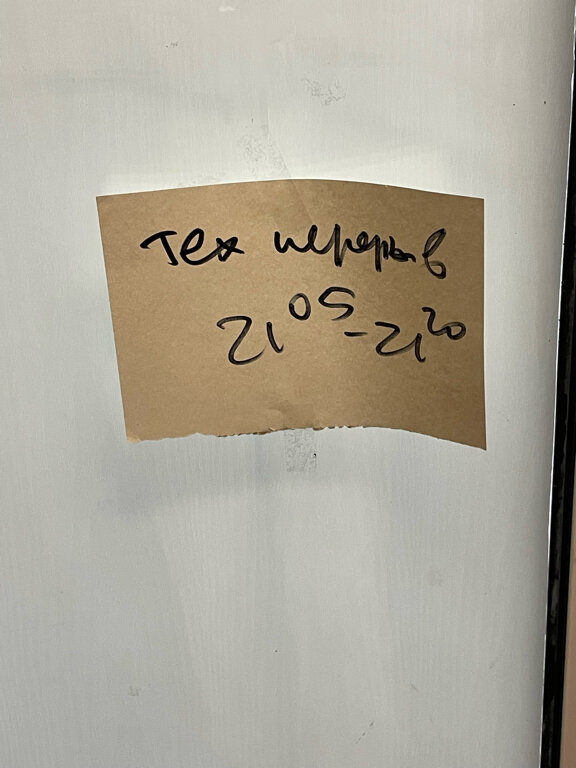 Тех перерыв
21⁰⁵-21²⁰